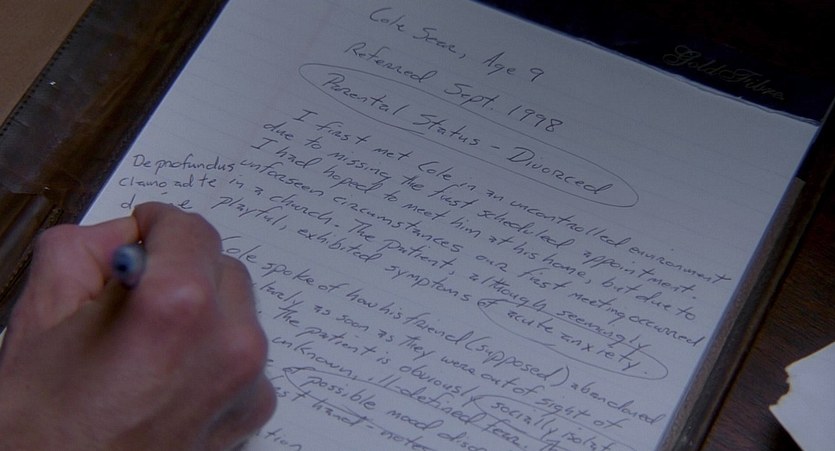 Gold Fibre
Cole Sear, Age 9
Referred Sept. 1998
Parental Status - Divorced
I first met Cole in an uncontrolled environment
due to missing the first scheduled appointment.
I had hoped to meet him at his home, but due to
unforseen circumstances our first meeting occurred
in a church. The patient, although seemingly
playful, exhibited symptoms of acute anxiety.
De profundus
clamo ad te
Cole spoke of how his friend (supposed) abandoned
as soon as they were out of sight of
The patient is obviously socially isolat
unknown, ill-defined fear.
possible mood diso